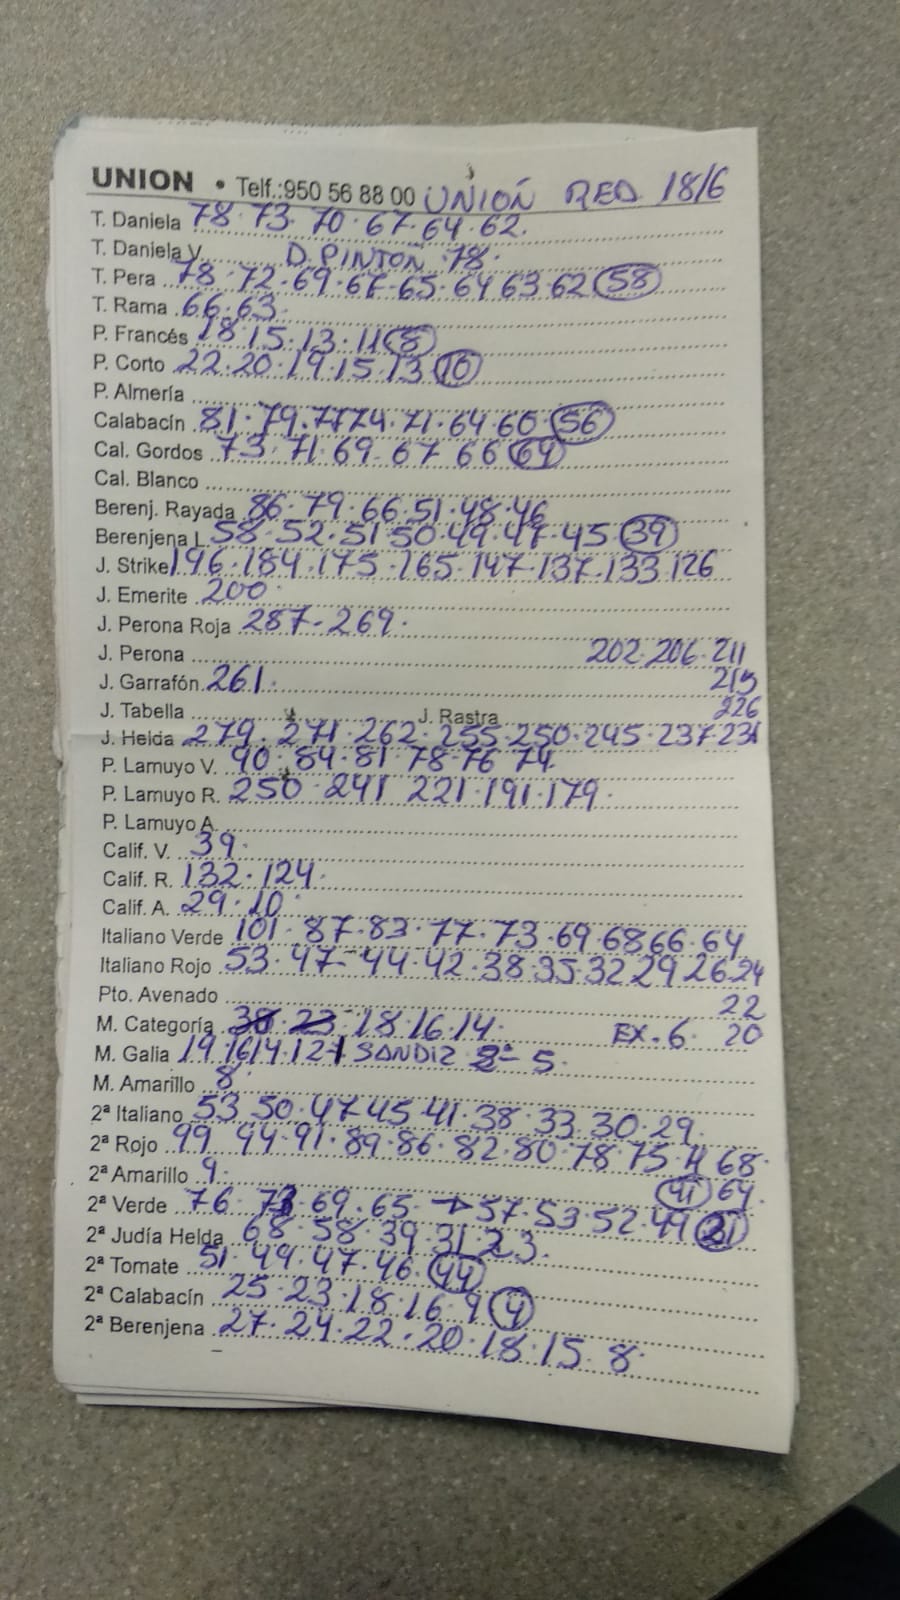 UNION • Telf.:950 56 88 00 UNION RED 18/6
T. Daniela 78·73·70·67·64·62.
T. Daniela V. D. PINTON ·78·
T. Pera 78·72·69·67·65·64 63·62 58
T. Rama 66·63·
P. Francés 18·15·13·11 8
P. Corto 22·20·19·15·13 10
P. Almería
Calabacín 81·79·77 74·71·64·60· 56
Cal. Gordos 73·71·69·67 66 64
Cal. Blanco
Berenj. Rayada 86·79·66·51·48·46
Berenjena L. 58·52·51 50·49·47·45 39
J. Strike 196·184·175·165·147·137·133·126
J. Emerite 200·
J. Perona Roja 287·269·
J. Perona 202·206·211
J. Garrafón 261· 215
J. Tabella J. Rastra 226
J. Helda 279·271·262·255·250·245·237·231
P. Lamuyo V. 90·84·81·78·76 74
P. Lamuyo R. 250·241 221·191·179·
P. Lamuyo A.
Calif. V. 39·
Calif. R. 132·124·
Calif. A. 29·10·
Italiano Verde 101·87·83·77·73·69·68 66·64
Italiano Rojo 53·47·44·42·38·35·32 29 26·24
Pto. Avenado 22
M. Categoría 18·16·14· EX·6· 20
M. Galia 19 16 14·12 SANDIZ 5·
M. Amarillo 8·
2ª Italiano 53 50·47·45·41·38·33·30·29·
2ª Rojo 99 94·91·89·86·82·80·78·75·71 68·
2ª Amarillo 9· 41 64·
2ª Verde 76·73·69·65·→57·53·52·49
2ª Judía Helda 68·58·39·31 23·
2ª Tomate 51·49·47·46· 44
2ª Calabacín 25·23·18·16·9 4
2ª Berenjena 27·24·22·20·18·15·8·